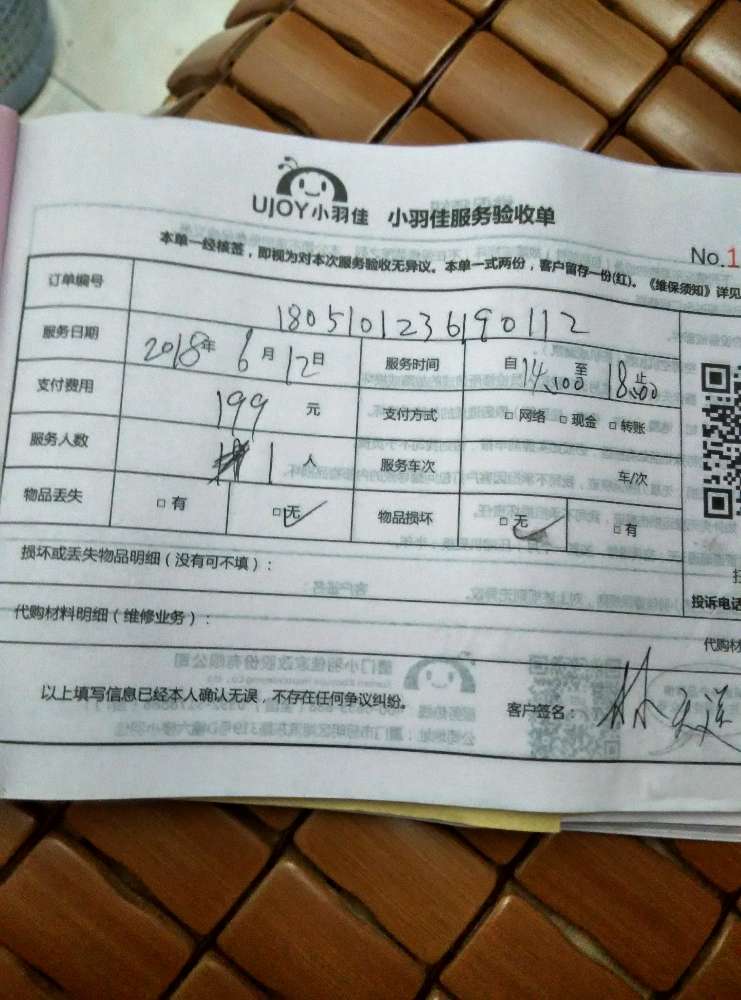 UJOY小羽佳 小羽佳服务验收单
No.1
本单一经核签，即视为对本次服务验收无异议。本单一式两份，客户留存一份(红)。《维保须知》详见
订单编号 1805101236190112
服务日期 2018年6月12日 服务时间 自14:00至18:00止
支付费用 199元 支付方式 □网络 □现金 □转账
服务人数 1人 服务车次 车/次
物品丢失 □有 □无 物品损坏 □无 □有
损坏或丢失物品明细（没有可不填）：
投诉电话
代购材料明细（维修业务）：
代购材
以上填写信息已经本人确认无误，不存在任何争议纠纷。 客户签名：林